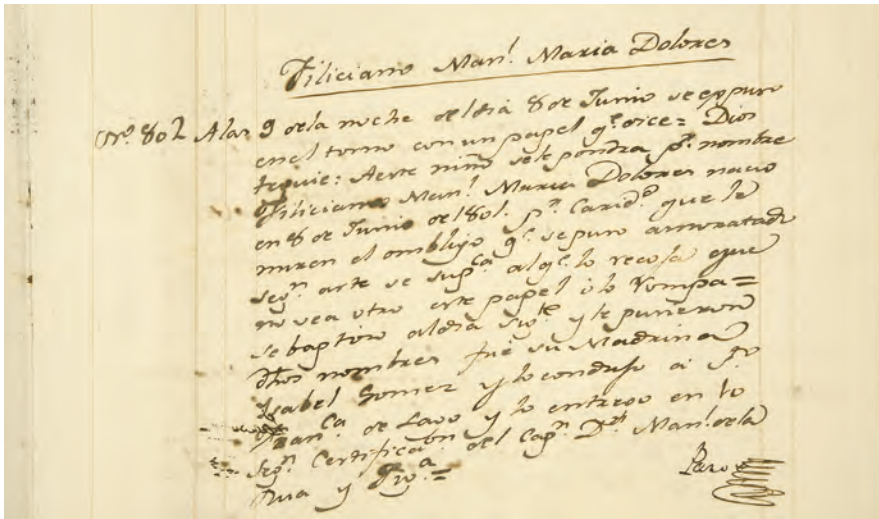 Filiciano Man.l Maria Dolores
Nro. 802 A las 9 de la noche del dia 8 de Junio se espuso
en el torno con un papel q.e dice = Dios
te guie: A este niño se le pondra p.r nombre
Filiciano Man.l Maria Dolores nacio
en 8 de Junio de 1801. p.r Carid.d que le
miren el ombligo q.e se puso amoratado
seg.n arte se sup.ca al q.e lo recoja que
no vea otro este papel i lo Rompa =
se baptizo al dia sig.te y le pusieron
dhos nombres fue su Madrina
Isabel Gomez y lo condujo a
Fran.ca de Lago y lo entrego en
seg.n Certificaon. del Cap.n D.n Man.l de la
Rua y